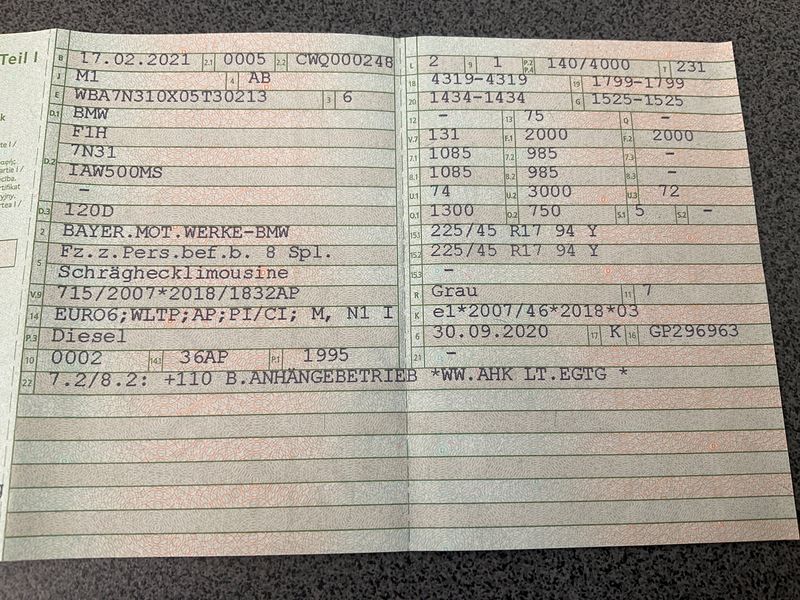 Teil I
B 17.02.2021 2.1 0005 2.2 CWQ000248
J M1 4 AB
E WBA7N310X05T30213 3 6
D.1 BMW
F1H
D.2 7N31
IAW500MS
–
D.3 120D
2 BAYER.MOT.WERKE-BMW
5 Fz.z.Pers.bef.b. 8 Spl.
Schräghecklimousine
V.9 715/2007*2018/1832AP
14 EURO6;WLTP;AP;PI/CI; M, N1 I
P.3 Diesel
10 0002 14.1 36AP P.1 1995
22 7.2/8.2: +110 B.ANHÄNGEBETRIEB *WW.AHK LT.EGTG *
L 2 9 1 P.2 P.4 140/4000 T 231
18 4319-4319 19 1799-1799
20 1434-1434 G 1525-1525
12 – 13 75 Q –
V.7 131 F.1 2000 F.2 2000
7.1 1085 7.2 985 7.3 –
8.1 1085 8.2 985 8.3 –
U.1 74 U.2 3000 U.3 72
O.1 1300 O.2 750 S.1 5 S.2 –
15.1 225/45 R17 94 Y
15.2 225/45 R17 94 Y
15.3 –
R Grau 11 7
K e1*2007/46*2018*03
6 30.09.2020 17 K 16 GP296963
21 –